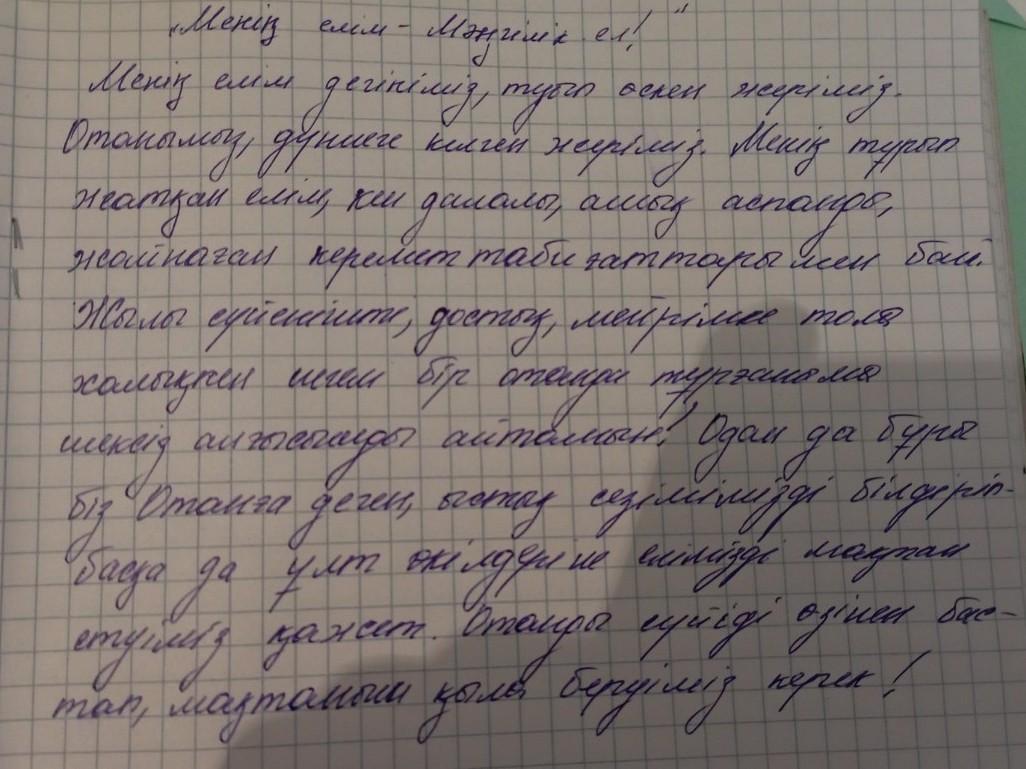 „Менің елім - Мәңгілік ел!"
Менің елім дегініміз, туып өскен жеріміз.
Отанымыз, дүниеге келген жеріміз. Менің тұрып
жатқан елім, кең далалы, ашық аспанды,
жайнаған керемет табиғаттарымен бай.
Жылы сүйеніште, достық, мейрімге толы
халықпен шеген бір отанда тұрғаныма
шексіз алғысымды айтамын! Одан да бұры
біз Отанға деген, ыстық сезімімізді білдеріп-
басқа да ұлт өкілдеріне елімізді мақтан
етуіміз қажет. Отанды сүйіді өзінен бас-
тап, мақтаныш қыла беруіміз керек!